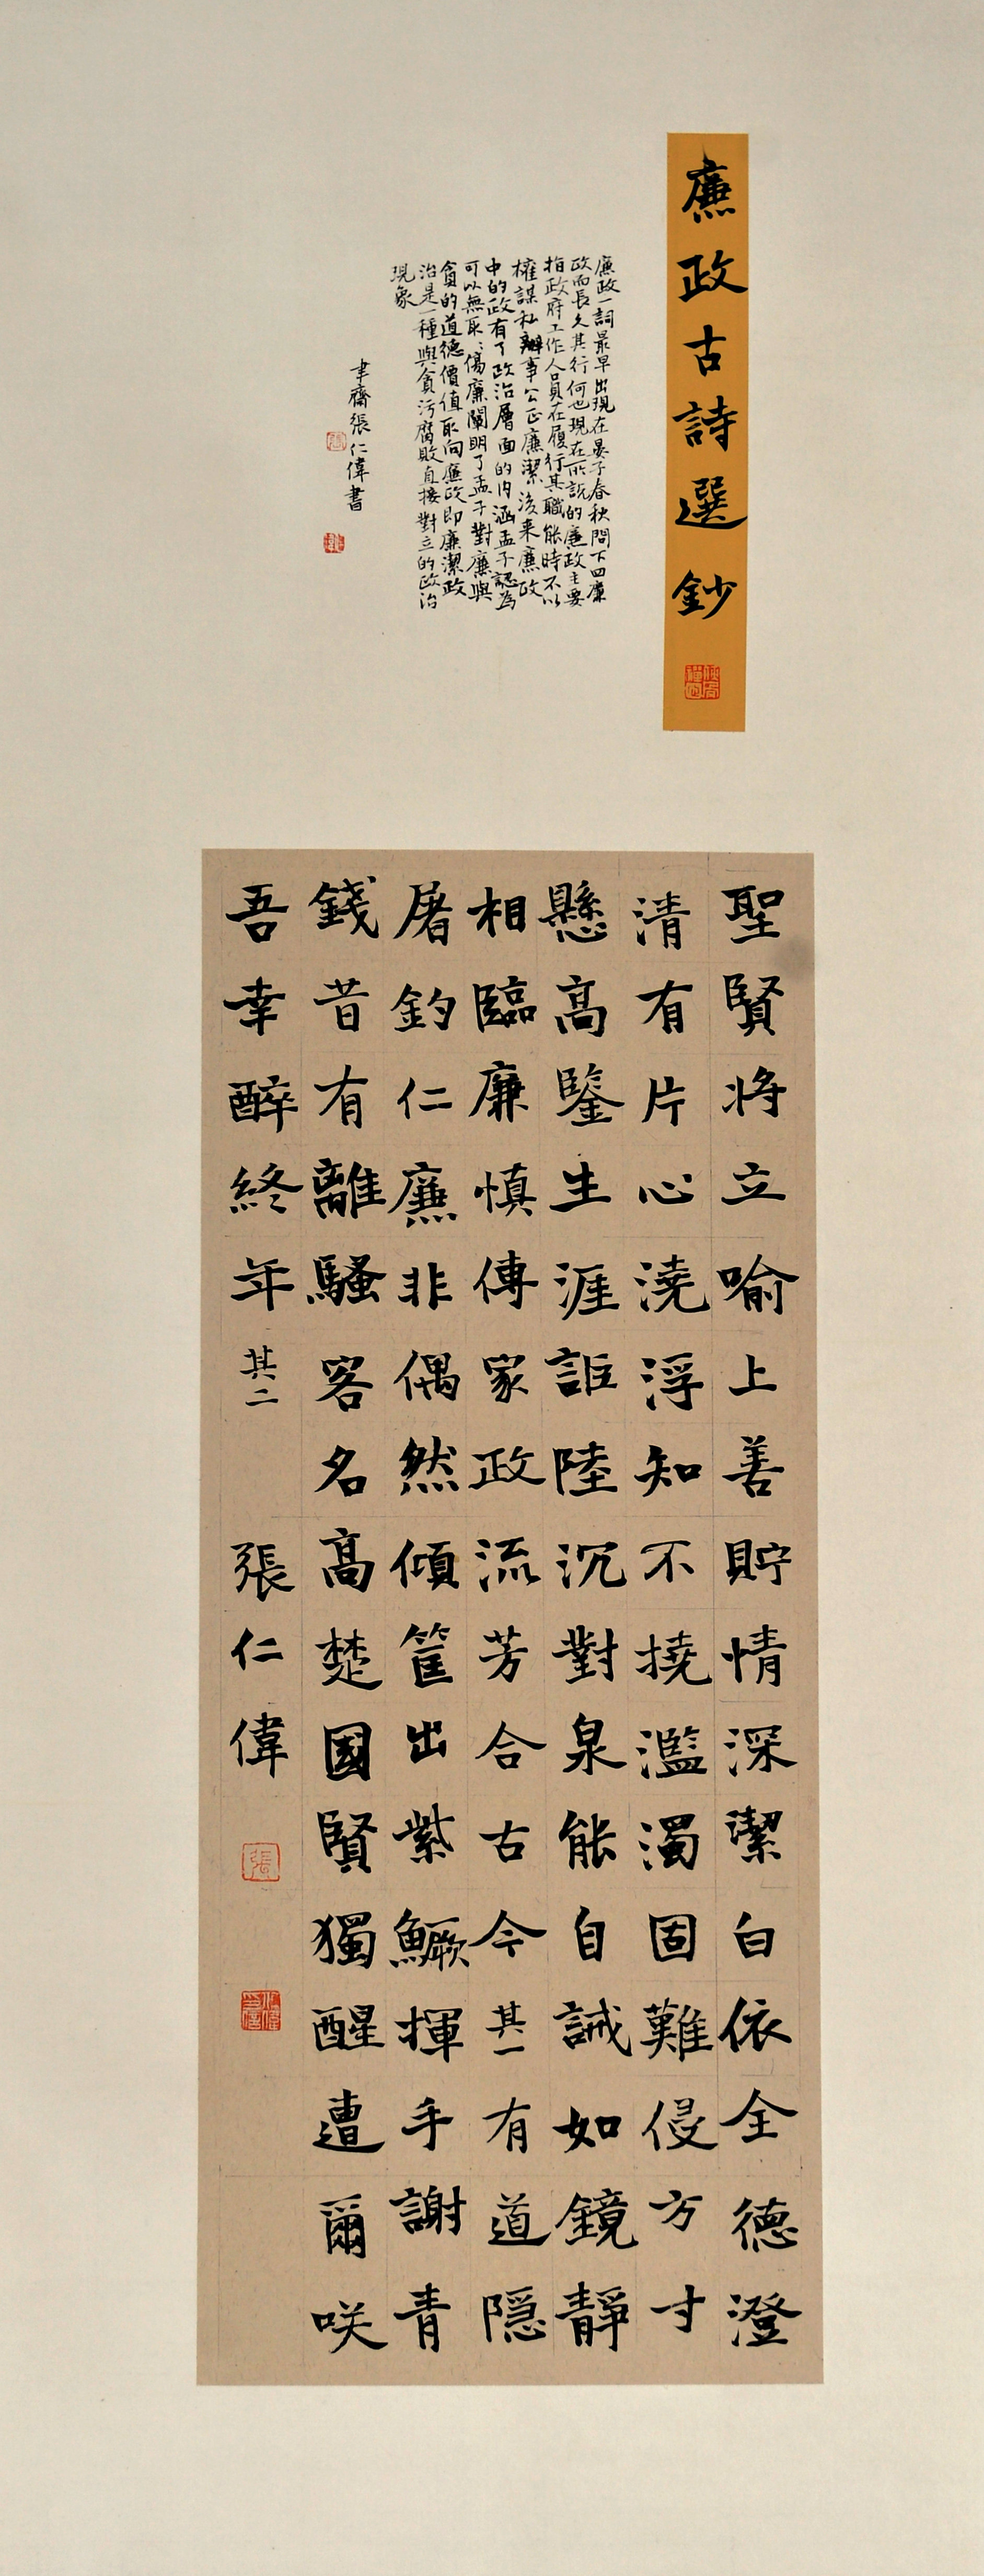 廉政古詩選鈔
廉政一詞最早出現在晏子春秋問下四廉
政而長久其行何也現在所說的廉政主要
指政府工作人員在履行其職能時不以
權謀私辦事公正廉潔後来廉政
中的政有了政治層面的内涵孟子認為
可以無取取傷廉闡明了孟子對廉與
貪的道德價值取向廉政即廉潔政
治是一種與貪污腐敗直接對立的政治
現象
聿齋張仁偉書
聖賢將立喻上善貯情深潔白依全德澄
清有片心澆浮知不撓濫濁固難侵方寸
懸高鑒生涯詎陸沉對泉能自誡如鏡靜
相臨廉慎傳家政流芳合古今其一有道隱
屠釣仁廉非偶然傾筐出紫鱖揮手謝青
錢昔有離騷客名高楚國賢獨醒遭爾咲
吾幸醉終年其二 張仁偉